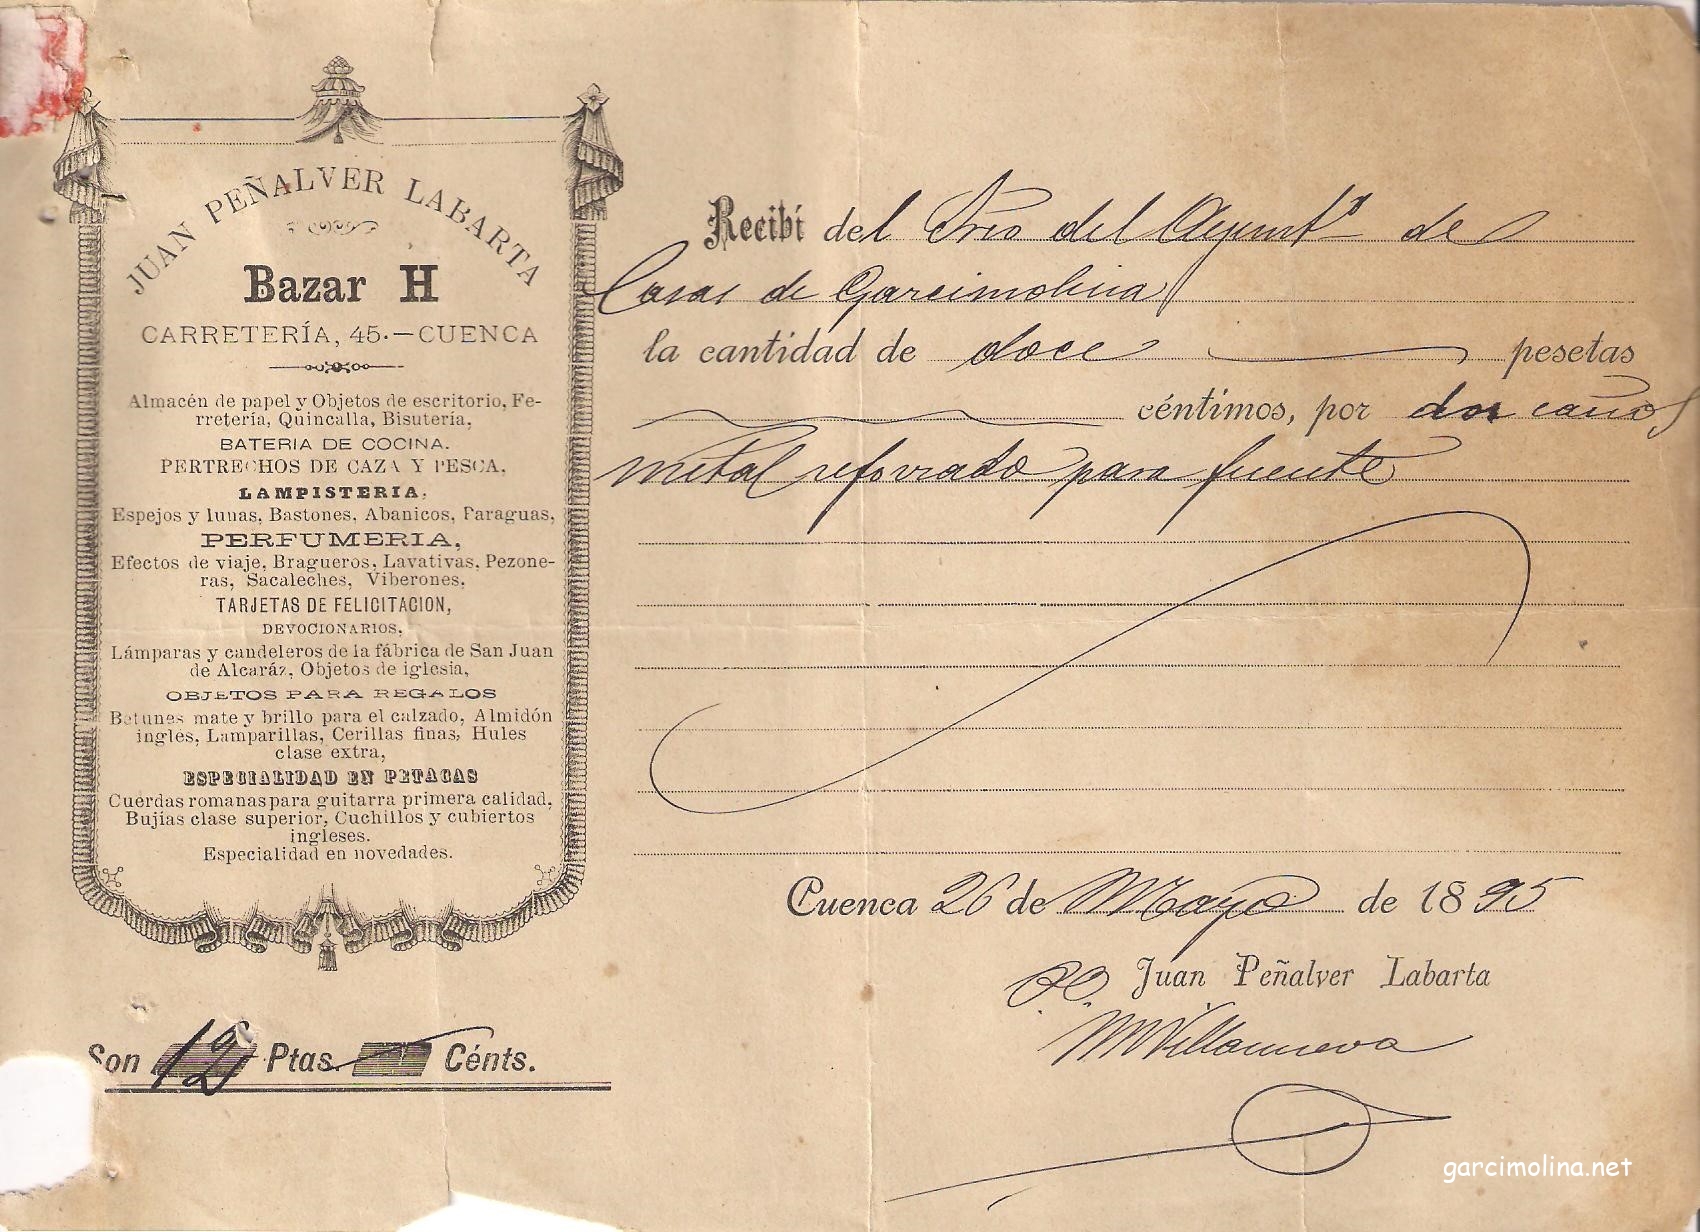 JUAN PEÑALVER LABARTA
Bazar H
CARRETERÍA, 45.—CUENCA
Almacén de papel y Objetos de escritorio, Fe-
rretería, Quincalla, Bisutería,
BATERIA DE COCINA.
PERTRECHOS DE CAZA Y PESCA,
LAMPISTERIA,
Espejos y lunas, Bastones, Abanicos, Paraguas,
PERFUMERIA,
Efectos de viaje, Bragueros, Lavativas, Pezone-
ras, Sacaleches, Viberones,
TARJETAS DE FELICITACION,
DEVOCIONARIOS,
Lámparas y candeleros de la fábrica de San Juan
de Alcaráz, Objetos de iglesia,
OBJETOS PARA REGALOS
Betunes mate y brillo para el calzado, Almidón
inglés, Lamparillas, Cerillas finas, Hules
clase extra,
ESPECIALIDAD EN PETACAS
Cuerdas romanas para guitarra primera calidad,
Bujías clase superior, Cuchillos y cubiertos
ingleses.
Especialidad en novedades.
Son 12 Ptas. Cénts.
Recibí del Srio del Ayuntº de
Casas de Garcimolina
la cantidad de doce pesetas
céntimos, por dos caños
metal reforzado para fuente
Cuenca 26 de Mayo de 1895
Juan Peñalver Labarta
Villanueva
garcimolina.net